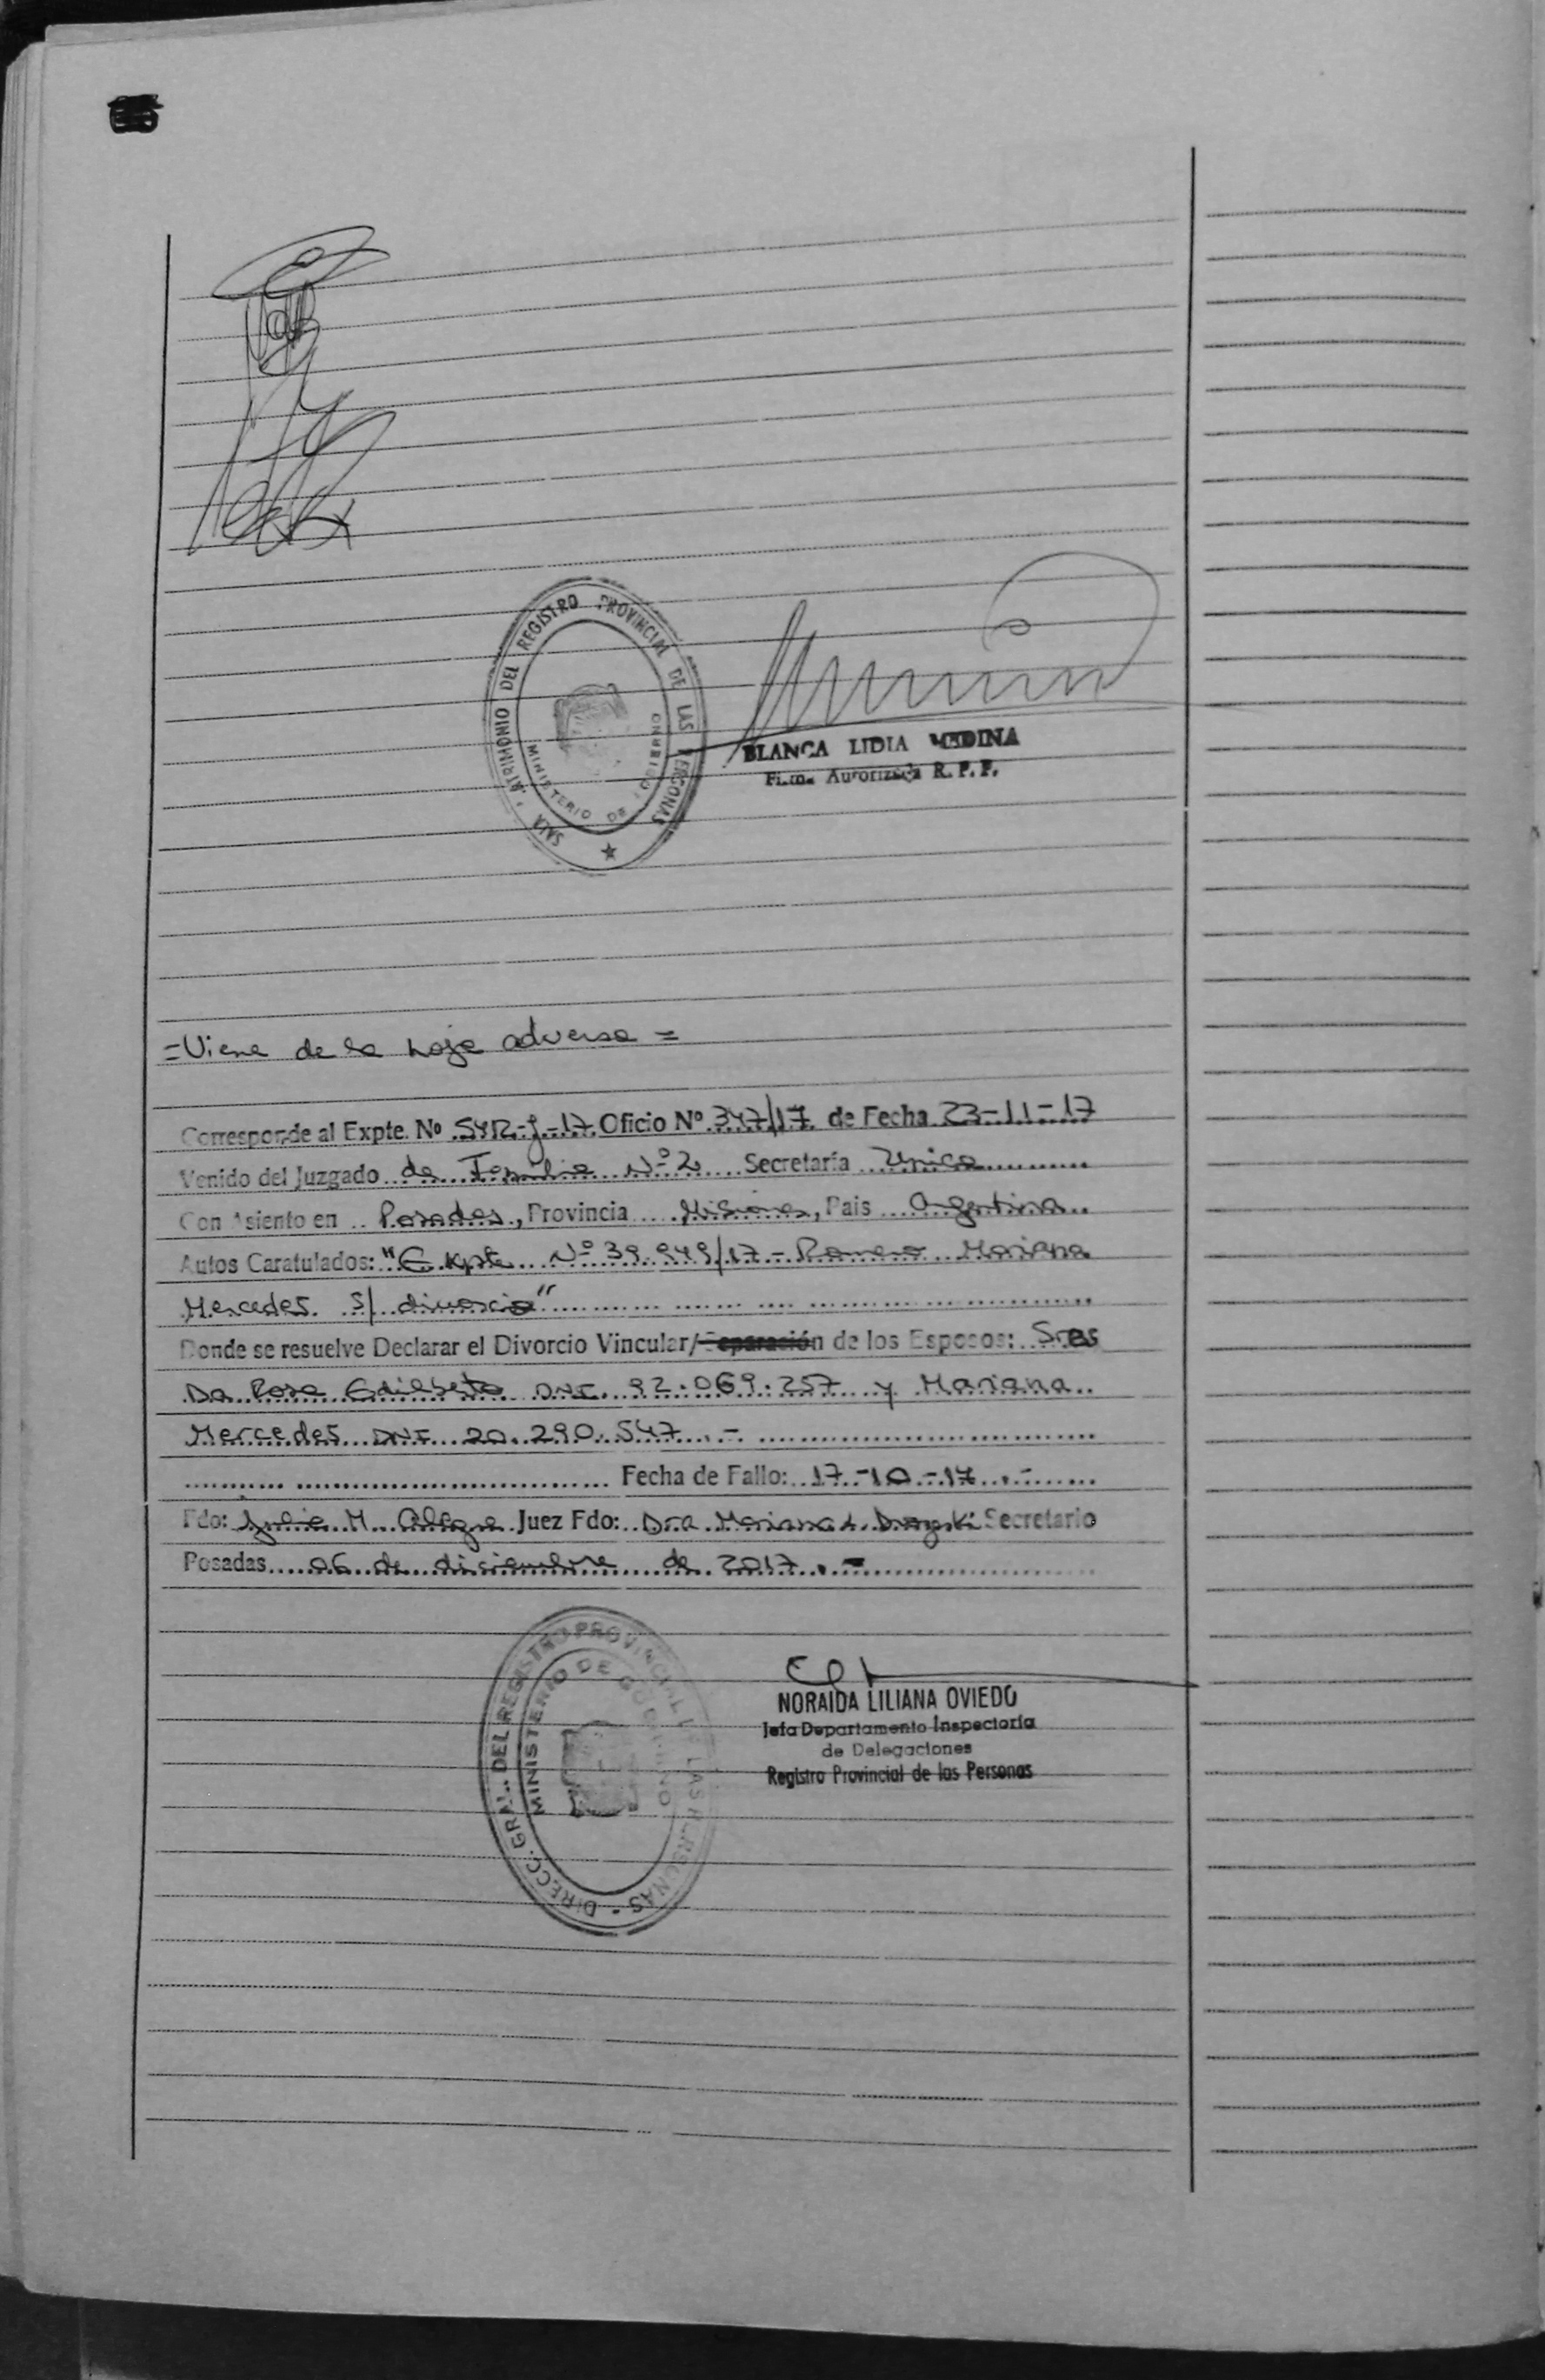 SNIA. MATRIMONIO DEL REGISTRO PROVINCIAL DE LAS PERSONAS
MINISTERIO DE GOBIERNO
BLANCA LIDIA MEDINA
Firma Autorizada R. P. P.
=Viene de la hoja adversa=
Corresponde al Expte. Nº 5412-J-17 Oficio Nº 347/17 de Fecha 23-11-17
Venido del Juzgado de Familia Nº 2 Secretaría Unica
Con Asiento en Posadas, Provincia Misiones, Pais Argentina
Autos Caratulados: "Expte Nº 39.949/17 - Romero Mariana
Mercedes s/ divorcio"
Donde se resuelve Declarar el Divorcio Vincular/Separación de los Esposos: Sres
Da Rosa Edilberto DNI. 92.069.257 y Mariana
Mercedes DNI 20.290.547.-
Fecha de Fallo: 17-10-17.-
Fdo: M. Alegre Juez Fdo: Dra Mariana Secretario
Posadas 06 de diciembre de 2017.-
DIRECC. GRAL. DEL REGISTRO PROVINCIAL DE LAS PERSONAS
MINISTERIO DE GOBIERNO
NORAIDA LILIANA OVIEDO
Jefa Departamento Inspectoría
de Delegaciones
Registro Provincial de las Personas